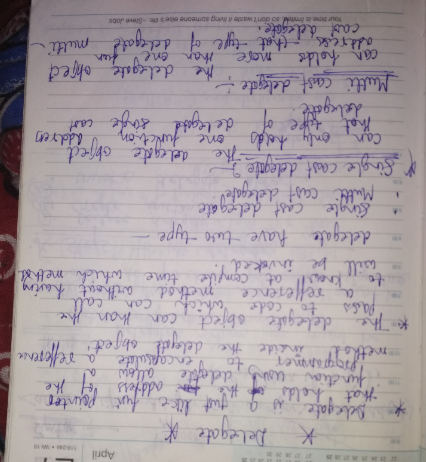 April
* Delegate *
* Delegate is a just like fun pointer
that holds the address of the
function using delegate allow a
programmer to encapsulate a reffrence
method inside the delegate object.
* The delegate object can than the
pass to code which can call
a refference method without having
to know at compile time which method
will be invoked.
delegate have two type —
• Single cast delegate
• Multi cast delegate
* Single cast delegate :-
The delegate object
can only holds one function address
that type of delegate single cast
delegate
Multi cast delegate :-
the delegate object
can holds more than one fun
address that type of delegate multi -
cast delegate.
Your time is limited so don't waste it living someone else's life. -Steve Jobs